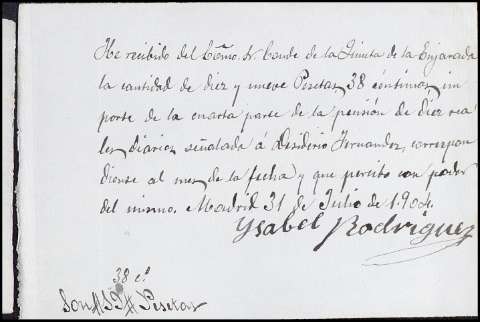 He recibido del Exmo. Sr Conde de la Quinta de la Enjarada
la cantidad de diez y nueve Pesetas 38 céntimos im
porte de la cuarta parte de la pensión de diez rea
les diarios señalada á Desiderio Fernandez, correspon
diense al mes de la fecha y que percibo con poder
del mismo. Madrid 31 de Julio de 1.904.
Ysabel Rodríguez
38 cs
Son Pesetas